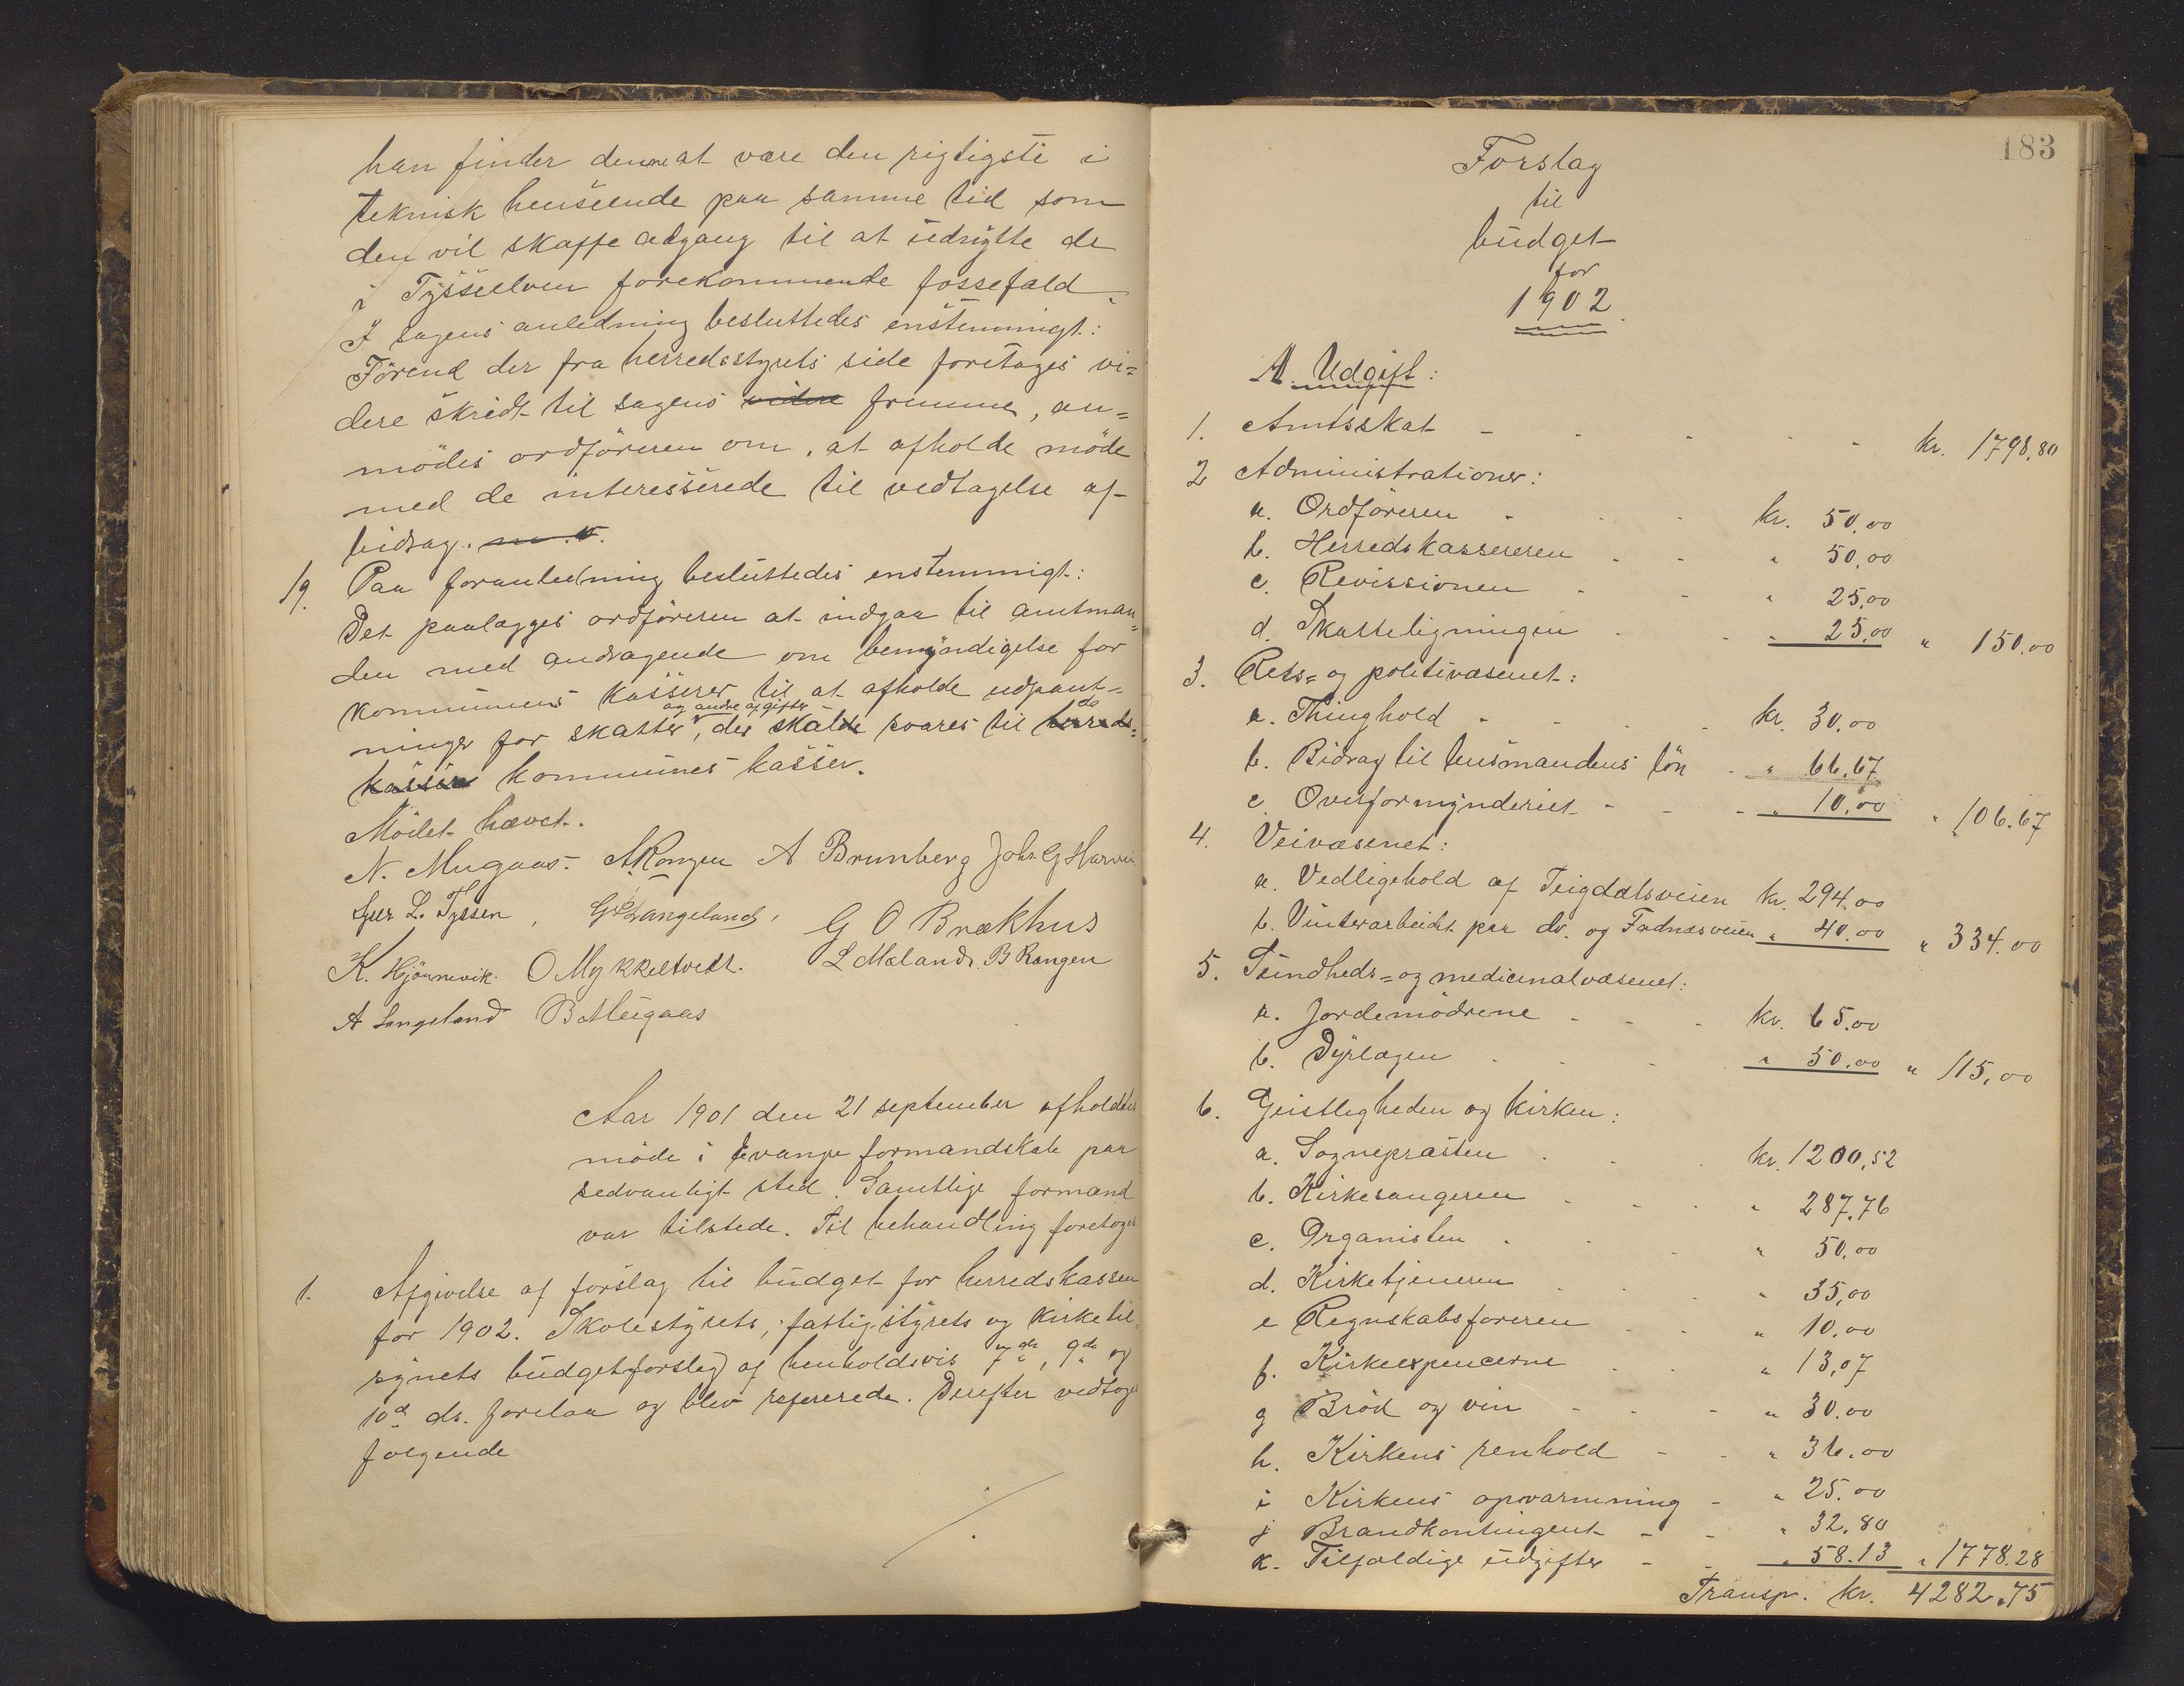 han finder denne at være den rigtigste i
teknisk henseende paa samme tid som
den vil skaffe adgang til at udnytte de
i Tysseelven forekommende fossefald.
I sagens anledning besluttedes enstemmigt:
Förend der fra herredsstyrets side foretages vi=
dere skridt til sagens videre fremme, an=
modes ordföreren om, at afholde möde
med de interesserede til vedtagelse af
bidrag. m. v.
19. Paa foranledning besluttedes enstemmigt:
Det paalægges ordföreren at indgaa til amtman=
den med andragende om bemyndigelse for
kommunens kasserer til at afholde udpant=
og andre afgifter de
ninger for skatter, der skal svares til herreds=
kassen kommunes kasser.
Mödet hævet.
N. Mugaas. A Rongen A Brunberg Johs G Horvei
Sjur L. Tyssen, G L Langeland, G O Brækhus
K. Hjörnevik. O Mykkeltvedt. L Mæland. B Rongen
A Langeland B Mugaas
Aar 1901 den 21 september afholdtes
möde i Evanger formandskab paa
sedvanligt sted. Samtlige formænd
var tilstede. Til behandling foretoges
1. Afgivelse af forslag til budget for herredskassen
for 1902. Skolestyrets, fattigstyrets og kirketil=
synets budgetforslag af henholdsvis 7de, 9de og
10de ds. forelaa og blev refererede. Derefter vedtoges
følgende
183
Forslag
til
budget
for
1902.
A. Udgift:
1. Amtsskat - - - - - kr. 1798,80
2 Administrationer:
a. Ordföreren - - - kr. 50,00
b. Herredskassereren - - " 50,00
c. Revissionen - - " 25,00
d. Skatteligningen - - " 25,00 " 150,00
3. Rets= og politivæsenet:
a. Thinghold - - - kr. 30,00
b. Bidrag til lensmandens lön - " 66,67
c. Overformynderiet - - - " 10,00 " 106.67
4. Veivæsenet:
a. Vedligehold af Teigdalsveien kr. 294.00
b. Vinterarbeidet paa do. og Fadnesveien " 40,00 " 334.00
5. Sundheds= og medicinalvæsenet:
a. Jordemödrene - - - kr. 65.00
b. Dyrlægen - - - " 50.00 " 115,00
6. Geistligheden og kirken:
a. Sognepræsten - - - kr. 1200,52
b. Kirkesangeren - - - " 287.76
c. Organisten - - - " 50,00
d. Kirketjeneren - - - " 35,00
e Regnskabsføreren - - " 10,00
f. Kirkeexpencerne - - " 13,07
g Bröd og vin - - - " 30.00
h. Kirkens renhold - - " 36.00
i Kirkens opvarmning - " 25.00
j Brandkontingent - - " 32.80
k. Tilfældige udgifter - - " 58.13 " 1778.28
Transp. kr. 4282.75